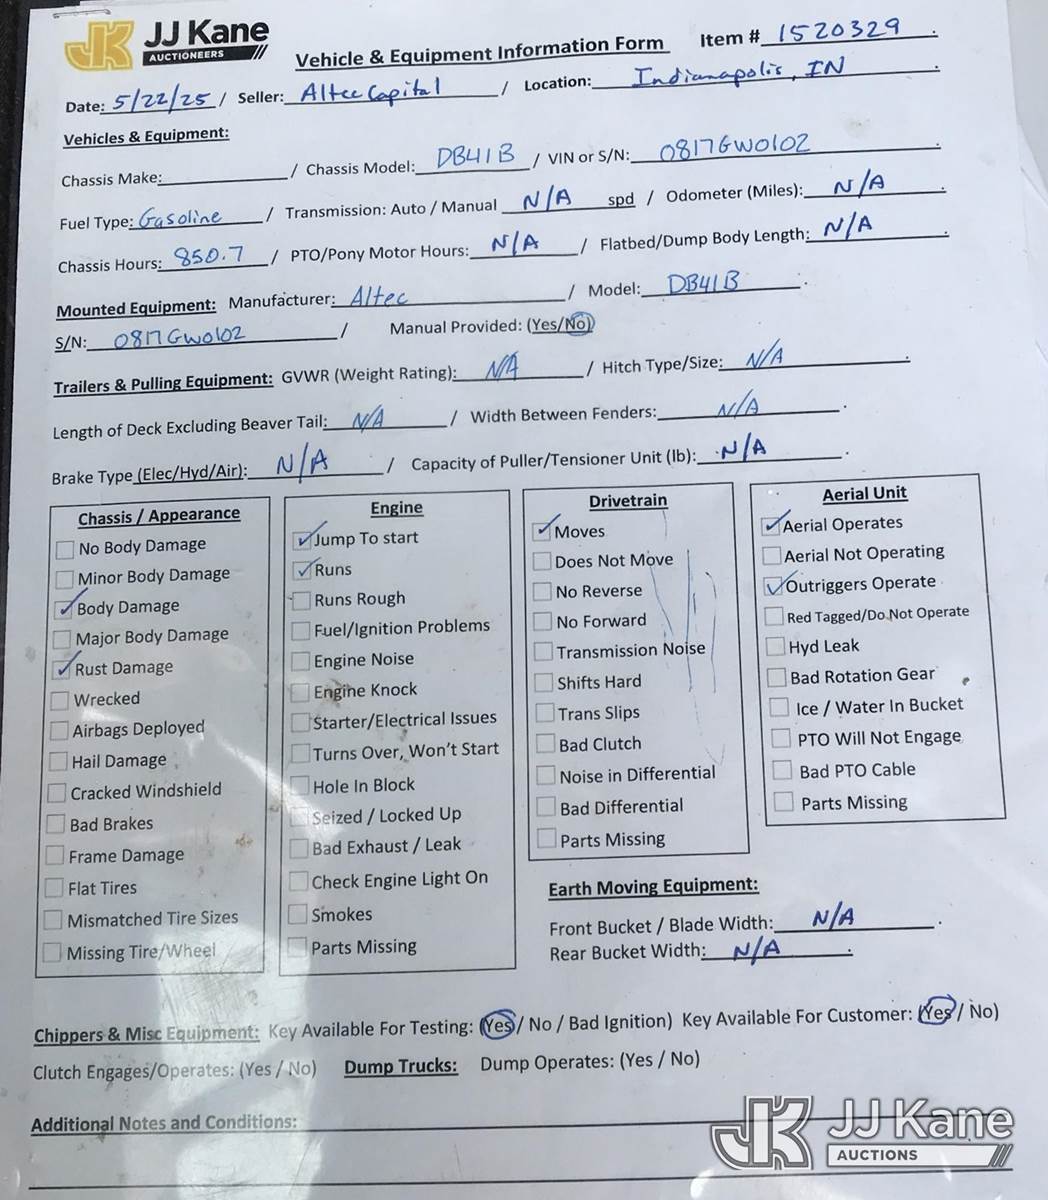 JJ Kane
AUCTIONEERS
Vehicle & Equipment Information Form Item # 1520329 .
Date: 5/22/25 / Seller: Altec Capital / Location: Indianapolis, IN .
Vehicles & Equipment:
Chassis Make: / Chassis Model: DB41B / VIN or S/N: 0817GW0102 .
Fuel Type: Gasoline / Transmission: Auto / Manual N/A spd / Odometer (Miles): N/A .
Chassis Hours: 850.7 / PTO/Pony Motor Hours: N/A / Flatbed/Dump Body Length: N/A .
Mounted Equipment: Manufacturer: Altec / Model: DB41B .
S/N: 0817GW0102 / Manual Provided: (Yes/No)
Trailers & Pulling Equipment: GVWR (Weight Rating): N/A / Hitch Type/Size: N/A .
Length of Deck Excluding Beaver Tail: N/A / Width Between Fenders: N/A .
Brake Type (Elec/Hyd/Air): N/A / Capacity of Puller/Tensioner Unit (lb): N/A .
Chassis / Appearance
No Body Damage
Minor Body Damage
✓ Body Damage
Major Body Damage
✓ Rust Damage
Wrecked
Airbags Deployed
Hail Damage
Cracked Windshield
Bad Brakes
Frame Damage
Flat Tires
Mismatched Tire Sizes
Missing Tire/Wheel
Engine
✓ Jump To start
✓ Runs
Runs Rough
Fuel/Ignition Problems
Engine Noise
Engine Knock
Starter/Electrical Issues
Turns Over, Won't Start
Hole In Block
Seized / Locked Up
Bad Exhaust / Leak
Check Engine Light On
Smokes
Parts Missing
Drivetrain
✓ Moves
Does Not Move
No Reverse
No Forward
Transmission Noise
Shifts Hard
Trans Slips
Bad Clutch
Noise in Differential
Bad Differential
Parts Missing
Aerial Unit
✓ Aerial Operates
Aerial Not Operating
✓ Outriggers Operate
Red Tagged/Do Not Operate
Hyd Leak
Bad Rotation Gear
Ice / Water In Bucket
PTO Will Not Engage
Bad PTO Cable
Parts Missing
Earth Moving Equipment:
Front Bucket / Blade Width: N/A .
Rear Bucket Width: N/A .
Chippers & Misc Equipment: Key Available For Testing: (Yes / No / Bad Ignition) Key Available For Customer: (Yes / No)
Clutch Engages/Operates: (Yes / No) Dump Trucks: Dump Operates: (Yes / No)
Additional Notes and Conditions:
JJ Kane
AUCTIONS